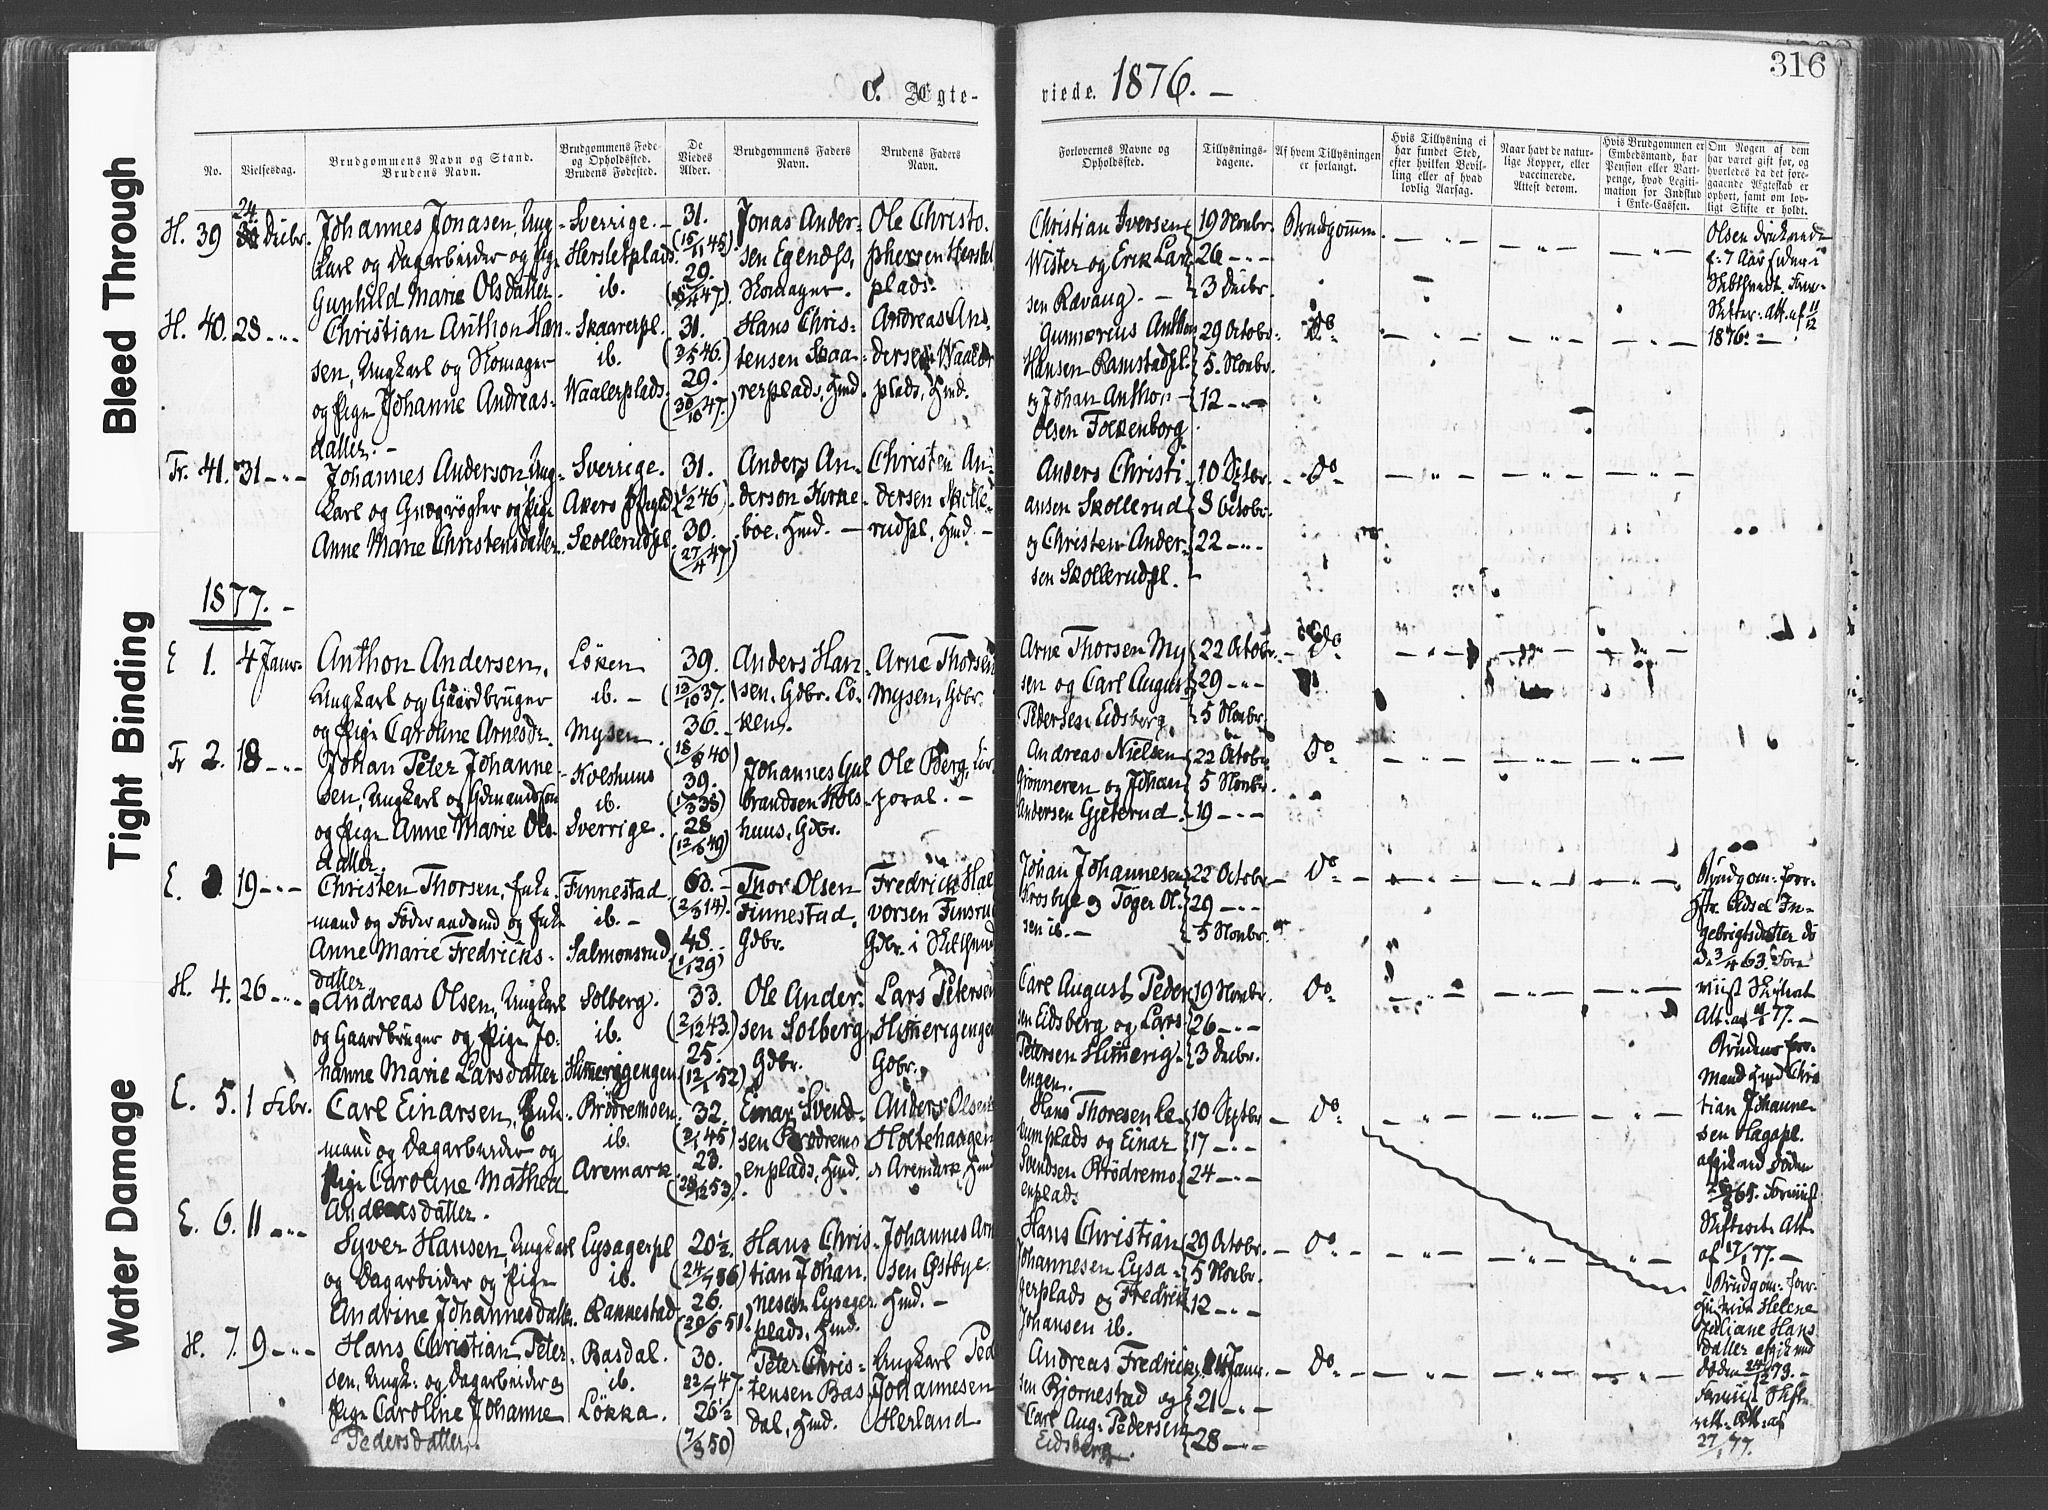 Bleed Through
Tight Binding
Water Damage
316
C. Ægte-
viede. 1876. –
No.
Vielsesdag.
Brudgommens Navn og Stand.
Brudens Navn.
Brudgommens Føde-
og Opholdssted.
Brudens Fødested.
De
Viedes
Alder.
Brudgommens Faders
Navn.
Brudens Faders
Navn.
Forlovernes Navne og
Opholdssted.
Tillysnings-
dagene.
Af hvem Tillysningen
er forlangt.
Hvis Tillysning ei
har fundet Sted,
efter hvilken Bevil-
ling eller af hvad
lovlig Aarsag.
Naar havt de natur-
lige Kopper, eller
vaccinerede.
Attest derom.
Hvis Brudgommen er
Embedsmand, har
Pension eller Vart-
penge, hvad Legiti-
mation for Indskud
i Enke-Cassen.
Om Nogen af dem
har været gift før, og
hvorledes da det fore-
gaaende Ægteskab er
ophørt, samt om lov-
ligt Skifte er holdt.
H. 39
24.
Decbr.
Johannes Jonasen, Ung-
karl og Dagarbeider og Pige
Gunhild Marie Olsdatter
Sverrige. –
Hersletplads.
ib.
31.
(15/11 45)
29.
Jonas Ander-
sen Egends,
Skomager.
Ole Christo-
phersen Herslet
plads.
Christian Iversen
Wister og Erik Lar-
sen Rævaug. –
19 Novbr.
26 – " –
3 Decbr.
Brudgomm.
Olsen druknede
f. 7 Aar siden i
Att. af 11/12
1876. –
H. 40. 28 – " –
Christian Anthon Han-
sen, Ungkarl og Skomager
og Pige Johanne Andreas-
datter. –
Skaarerpl.
ib.
Waalerplads.
31.
(2/5 46.)
29.
(30/10 47.)
Hans Chris-
tensen Skaa-
rerplads, Hmd.
Andreas An-
dersen Waaler
plads, Hmd.
Gunnerius Anthon
Hansen Ramstadpl.
og Johan Anthon
Olsen Folkenborg.
29 Octobr.
5. Novbr.
12 – " –
Do
Tr. 41. 31 – " –
Johannes Anderson, Ung-
karl og Gnægrøgter og Pige
Anne Marie Christensdatter
Sverrige.
Akers Pfgld
Skollerudpl.
31.
(1/2 46)
30.
(27/4 47)
Anders An-
derson Kirke-
boe, Hmd. –
Christen An-
dersen Skolle-
rudpl, Hmd. –
Anders Christi-
ansen Skollerud
og Christen Ander-
sen Skollerudpl.
10 Septbr.
8 Octobr.
22 – " –
Do
1877. –
E 1. 4 Janr.
Anthon Andersen,
Ungkarl og Gaardbruger
og Pige Caroline Arnesdr.
Löken
ib. –
Mysen
39.
(12/10 37.)
36. –
(18/8 40)
Anders Han-
sen, Gdbr. Lö-
ken.
Arne Thorsen
Mysen, Gdbr.
Arne Thorsen My-
sen og Carl August
Pedersen Eidsberg
22 Octobr.
29 – " –
5 Novbr.
Do
Tr 2. 18 – " –
Johan Peter Johanne-
sen, Ungkarl og Gdmandssøn
og Pige Anne Marie Ols-
datter
Kolshuus
ib.
Sverrige.
39.
(17/3 38)
28
(12/5 49)
Johannes Gul-
brandsen Kols-
huus, Gdbr.
Ole Berg, Cor-
poral. –
Andreas Nielsen
Grönneren og Johan
Andersen Gjeterud
22 Octobr.
5 Novbr.
19 – " –
Do
E. 3. 19 – " –
Christen Thorsen, Enke-
mand og Föderaadsmd og Enke
Anne Marie Fredricks-
datter
Finnestad
ib. –
Salmonsrud
63. –
(2/3 14).
48.
(1/1 29)
Thor Olsen
Finnestad,
Gdbr.
Fredrick Hal-
vorsen Finsrud
Gdbr. i Skibthvedt
Johan Johannesen
Krosbye og Töger Ol-
sen ib. –
22 Octobr.
29 – " –
5 Novbr.
Do
Brudgom: forr-
Htr. Edsel In-
gebrigtsdatter dö
de 3/4 63.
Att. af 77. –
Brudens for-
Mand Hmd Chris
tian Johanne-
sen Hagapl.
afgik ved Döden
65.
Att
af 17/1 77. –
H. 4. 26 – " –
Andreas Olsen, Ungkarl
og Gaardbruger og Pige Jo-
hanne Marie Larsdatter
Solberg.
ib.
Himerigengen
33.
(2/12 43.)
25.
(12/1 52)
Ole Ander-
sen Solberg,
Gdbr.
Lars Petersen
Himerigengen
Gdbr.
Carl August Peder-
sen Eidsberg og Lars
Petersen Himerig-
engen.
19 Novbr.
26 – " –
3 Decbr.
Do
E. 5. 1 Febr.
Carl Einarsen, Enke-
mand og Dagarbeider og
Pige Caroline Mathea
Andersdatter.
Brödremoen
ib.
Aremark
32.
(2/1 45)
23.
(28/12 53).
Einar Svend-
sen Brödremo-
enplads, Hmd.
Anders Olsen
Holtehaugen
i Aremark, Hmd
Hans Thoresen Le-
rumplads og Einar
Svendsen Brödremo-
enplads.
10 Septbr
17 – " –
24 – " –
Do
Brudgom: forr-
Helene
Juliane Hans
datter afgik ved
Döden 24/12 73. –
Att. af
27/1 77.
E. 6. 11 – " –
Syver Hansen, Ungkarl
og Dagarbeider og Pige
Andrine Johannesdatter
Lysagerpl
ib.
Rannestad
20½.
26.
Hans Chris-
tian Johan-
nesen Lysager-
plads, Hmd.
Johannes Arn
sen Östbye.
Hmd. –
Hans Christian
Johannesen Lysa-
gerplads og Fredrik
Johansen ib.
29 Octobr.
5 Novbr.
12 – " –
Do
H. 7. 9 – " –
Hans Christian Peter-
sen, Ungk: og Dagarbeider og
Pige Caroline Johanne
Pedersdatter.
Basdal.
ib.
Lökka.
30.
26½
(7/3 50)
Peter Chris-
tensen Bas-
dal, Hmd.
Ungkarl Peder
Johannesen
Herland
Andreas Fredrick-
sen Bjornestad og
Carl Aug: Pedersen
Eidsberg.
14 Janr.
21 – " –
28 – " –
Do